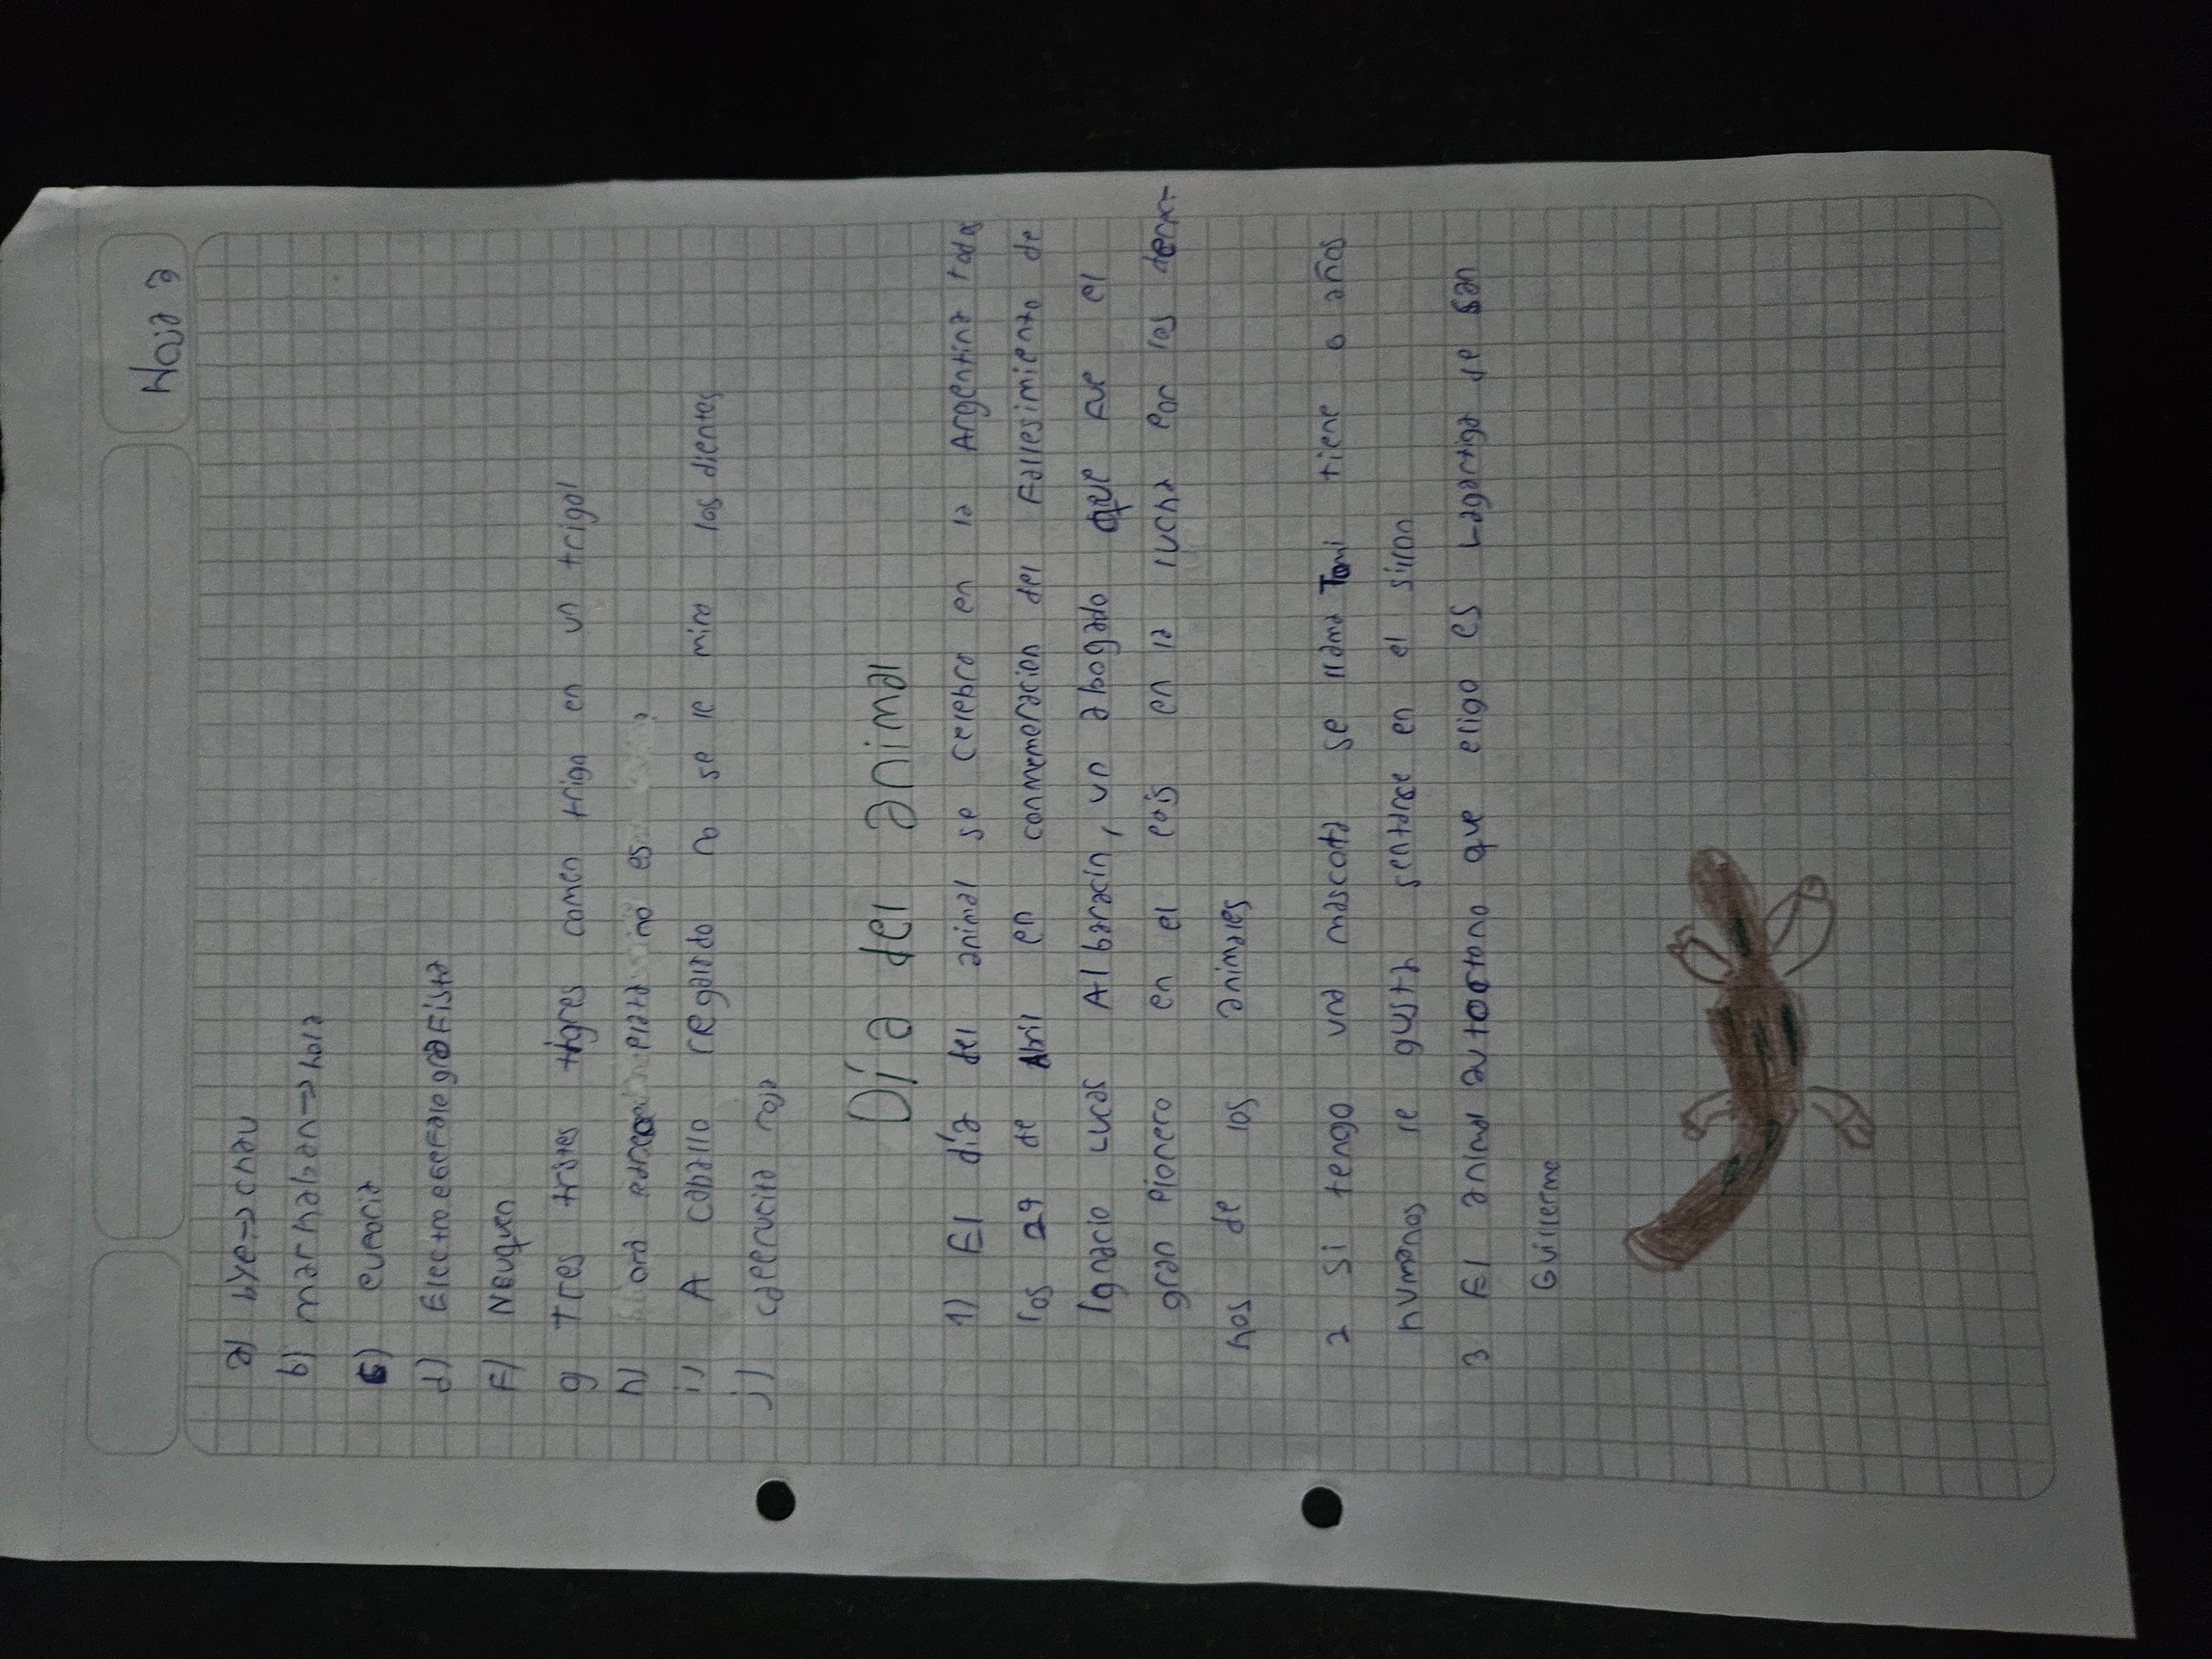 Hoja 2
a) bye → chau
b) marhaban → hola
c) euforia
d) Electroencefalografista
F) Neuquen
g) Tres tristes tigres comen trigo en un trigal
h) ora plata no es
i) A caballo regalado no se le mira los dientes
j) caperucita roja
Día del animal
1) El día del animal se celebra en la Argentina todos
los 29 de Abril en conmemoracion del Fallesimiento de
Ignacio Lucas Albarracin, un abogado que Fue el
gran Pionero en el país en la lucha por los derec-
hos de los animales
2 Si tengo una mascota se llama Tomi tiene 6 años
humanos le gusta sentarse en el sillon
3 El animal autoctono que eligo es Lagartija de San
Guillermo